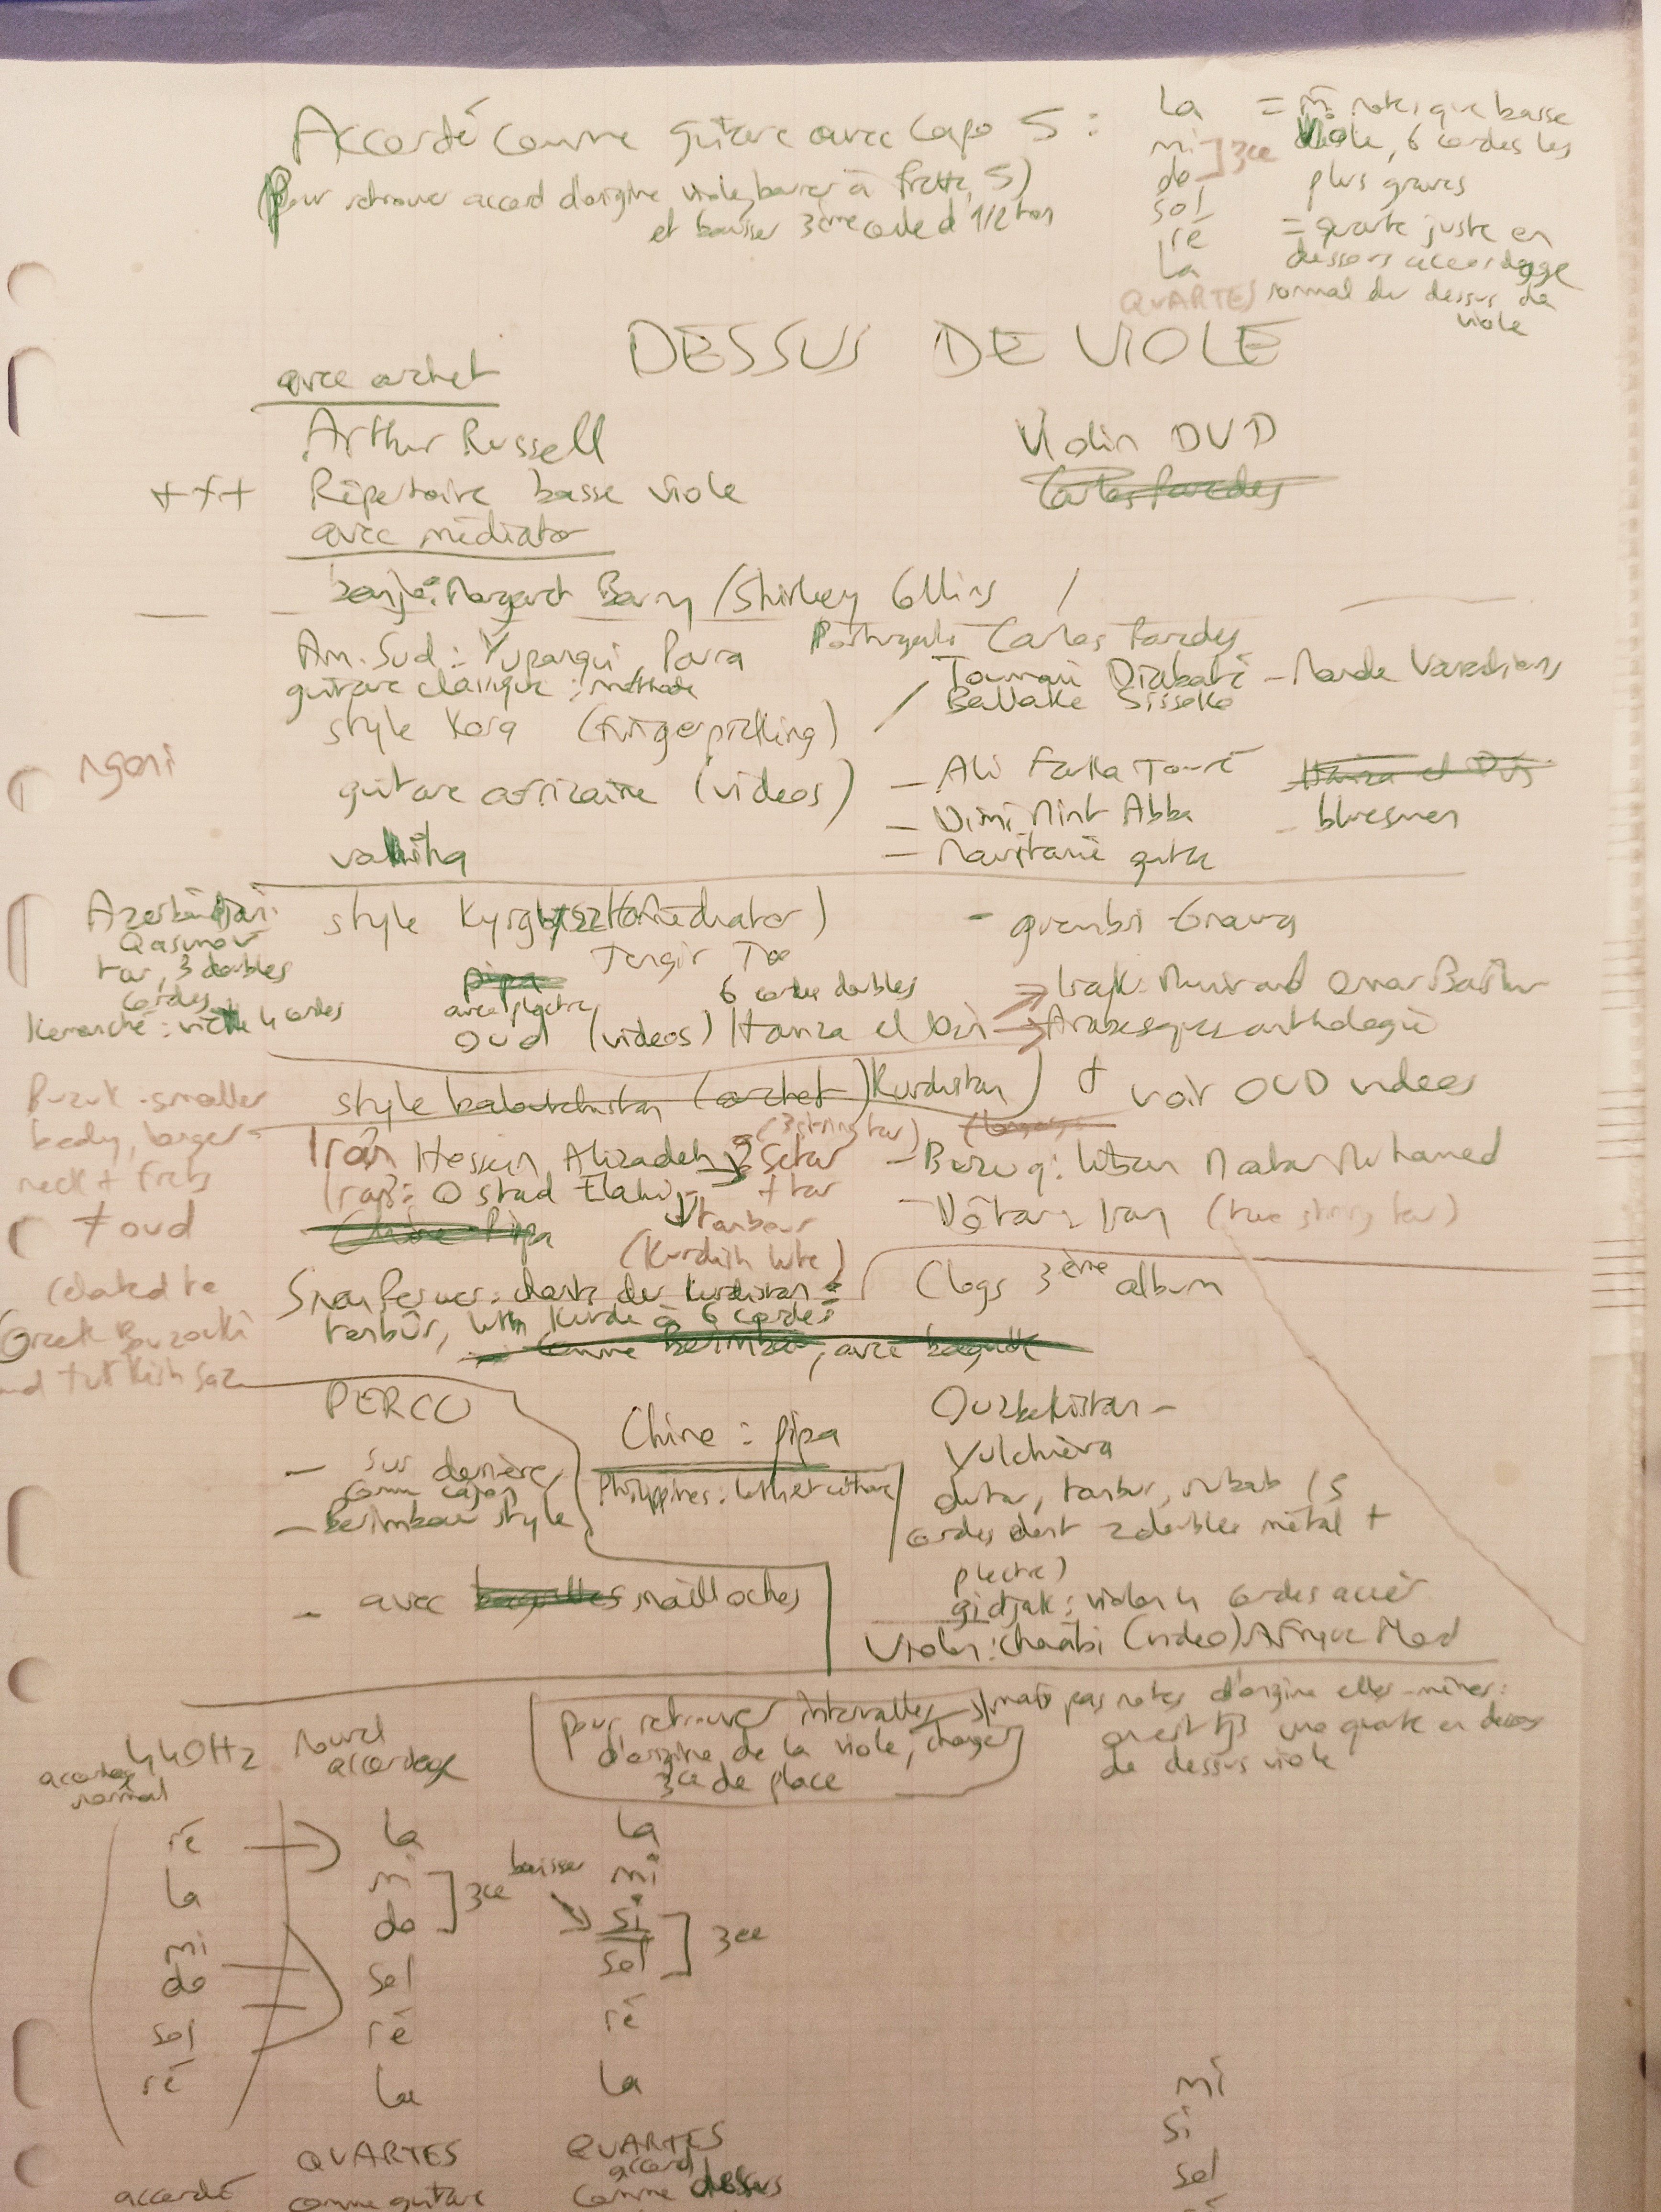 Accordé comme guitare avec Capo 5 :
(Pour retrouver accord d'origine viole, barrer à frette 5)
et baisser 3ème corde d'1/2 ton
la = m̂ notes que basse
mi viole, 6 cordes les
do ] 3ce plus graves
sol
ré = quarte juste en
la dessous accordage
QUARTES normal du dessus de
viole
DESSUS DE VIOLE
avec archet
Arthur Russell
Violin DVD
+++ Répertoire basse viole
Carlos Paredes
avec médiator
banjo: Margaret Barry / Shirley Collins /
Am. Sud : Yupanqui, Parra
Portugal: Carlos Paredes
guitare classique : méthode
/ Toumani Diabaté - Mande Variations
Ballaké Sissoko
style Kora (fingerpicking)
ngoni
guitare africaine (videos)
- Ali Farka Touré
Hamza el Din
- Dimi Mint Abba
- bluesmen
- Mauritanie guitare
valiha
Azerbaïdjan:
Qasimov
tar, 3 doubles
cordes
Kemanché : vielle 4 cordes
style Kyrgyz (médiator)
- guembri Gnawa
Tengir Too
pipa
avec plectre
6 cordes doubles
→ Irak: Munir and Omar Bashir
oud (videos) Hamza el Din → Arabesques anthologie
style baloutchistan (archet) Kurdistan) + voir OUD videos
Buzuk - smaller
body, longer
neck + frets
≠ oud
related to
Greek Bouzouki
and turkish saz
Iran Hossein Alizadeh → setar
(3 string tar)
+ tar
Iran: Ostad Elahi
→ tanbour
(Kurdish lute)
Chine Pipa
- Bozoq: Liban Matar Mohamed
- Dôtar: Iran (two string tar)
Sivan Perwer: chants du Kurdistan =
tanbûr, luth Kurde à 6 cordes
Clogs 3ème album
comme berimbau, avec baguette
PERCU
- sur derrière,
comme cajon
- Berimbau style
- avec baguettes mailloches
Chine : pipa
Philippines: luth et cithare
Ouzbekistan -
Yulchieva
dutar, tanbur, rubab (5
cordes dont 2 doubles métal +
plectre)
gidjak : violon 4 cordes acier
Violon: chaabi (video) Afrique Nord
440Hz
accordage
normal
nouvel
accordage
pour retrouver intervalles
d'origine de la viole, changer
3ce de place
mais pas notes d'origine elles-mêmes:
on est tjs une quarte en dessous
de dessus viole
ré la la
la mi baisser mi
mi do ] 3ce → si
do sol sol ] 3ce
sol ré ré
ré la la
QUARTES
comme guitare
QUARTES
accord
comme dessus
accordé
mi
si
sol